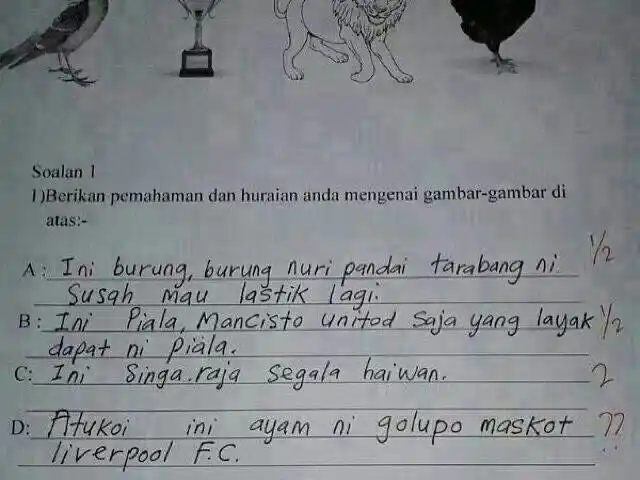 Soalan 1
1)Berikan pemahaman dan huraian anda mengenai gambar-gambar di
atas:-
A: Ini burung, burung nuri pandai tarabang ni 1/2
Susah mau lastik lagi.
B: Ini Piala, Mancisto unitod saja yang layak 1/2
dapat ni piala.
C: Ini Singa.raja segala haiwan. 2
D: Atukoi ini ayam ni golupo maskot ??
liverpool F.C.